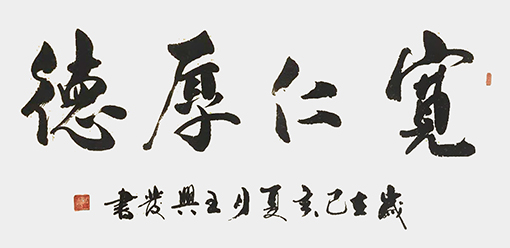 寬仁厚德
歲在己亥夏月王興發書